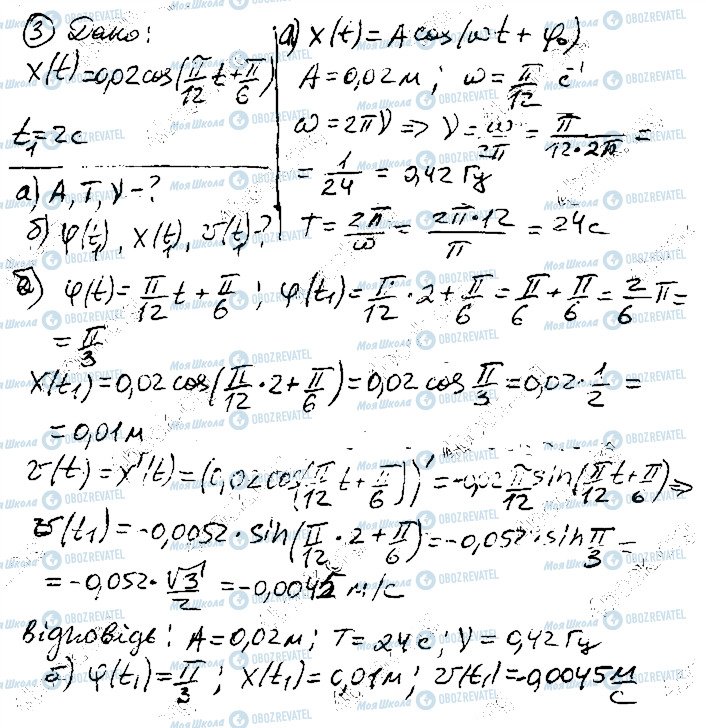 ③ Дано:
x(t)=0,02cos(π/12 t+π/6)
t₁=2c
а) A, T, ν-?
б) φ(t₁), x(t₁), υ(t₁)-?
а) x(t)=A cos(ωt+φ₀)
A=0,02м; ω=π/12 c⁻¹
ω=2πν => ν=ω/2π=π/12·2π=
=1/24=0,42Гц
T=2π/ω=2π·12/π=24c
б) φ(t)=π/12 t+π/6; φ(t₁)=π/12·2+π/6=π/6+π/6=2/6 π=
=π/3
x(t₁)=0,02cos(π/12·2+π/6)=0,02 cos π/3=0,02·1/2=
=0,01м
υ(t)=x'(t)=(0,02cos(π/12 t+π/6))'=-0,02 π/12 sin(π/12 t+π/6)=>
υ(t₁)=-0,0052·sin(π/12·2+π/6)=-0,052·sin π/3=
=-0,052·√3/2=-0,0045 м/с
Відповідь: A=0,02м; T=24c; ν=0,42Гц
б) φ(t₁)=π/3; x(t₁)=0,01м; υ(t₁)=-0,0045 м/с
Моя Школа OBOZREVATEL